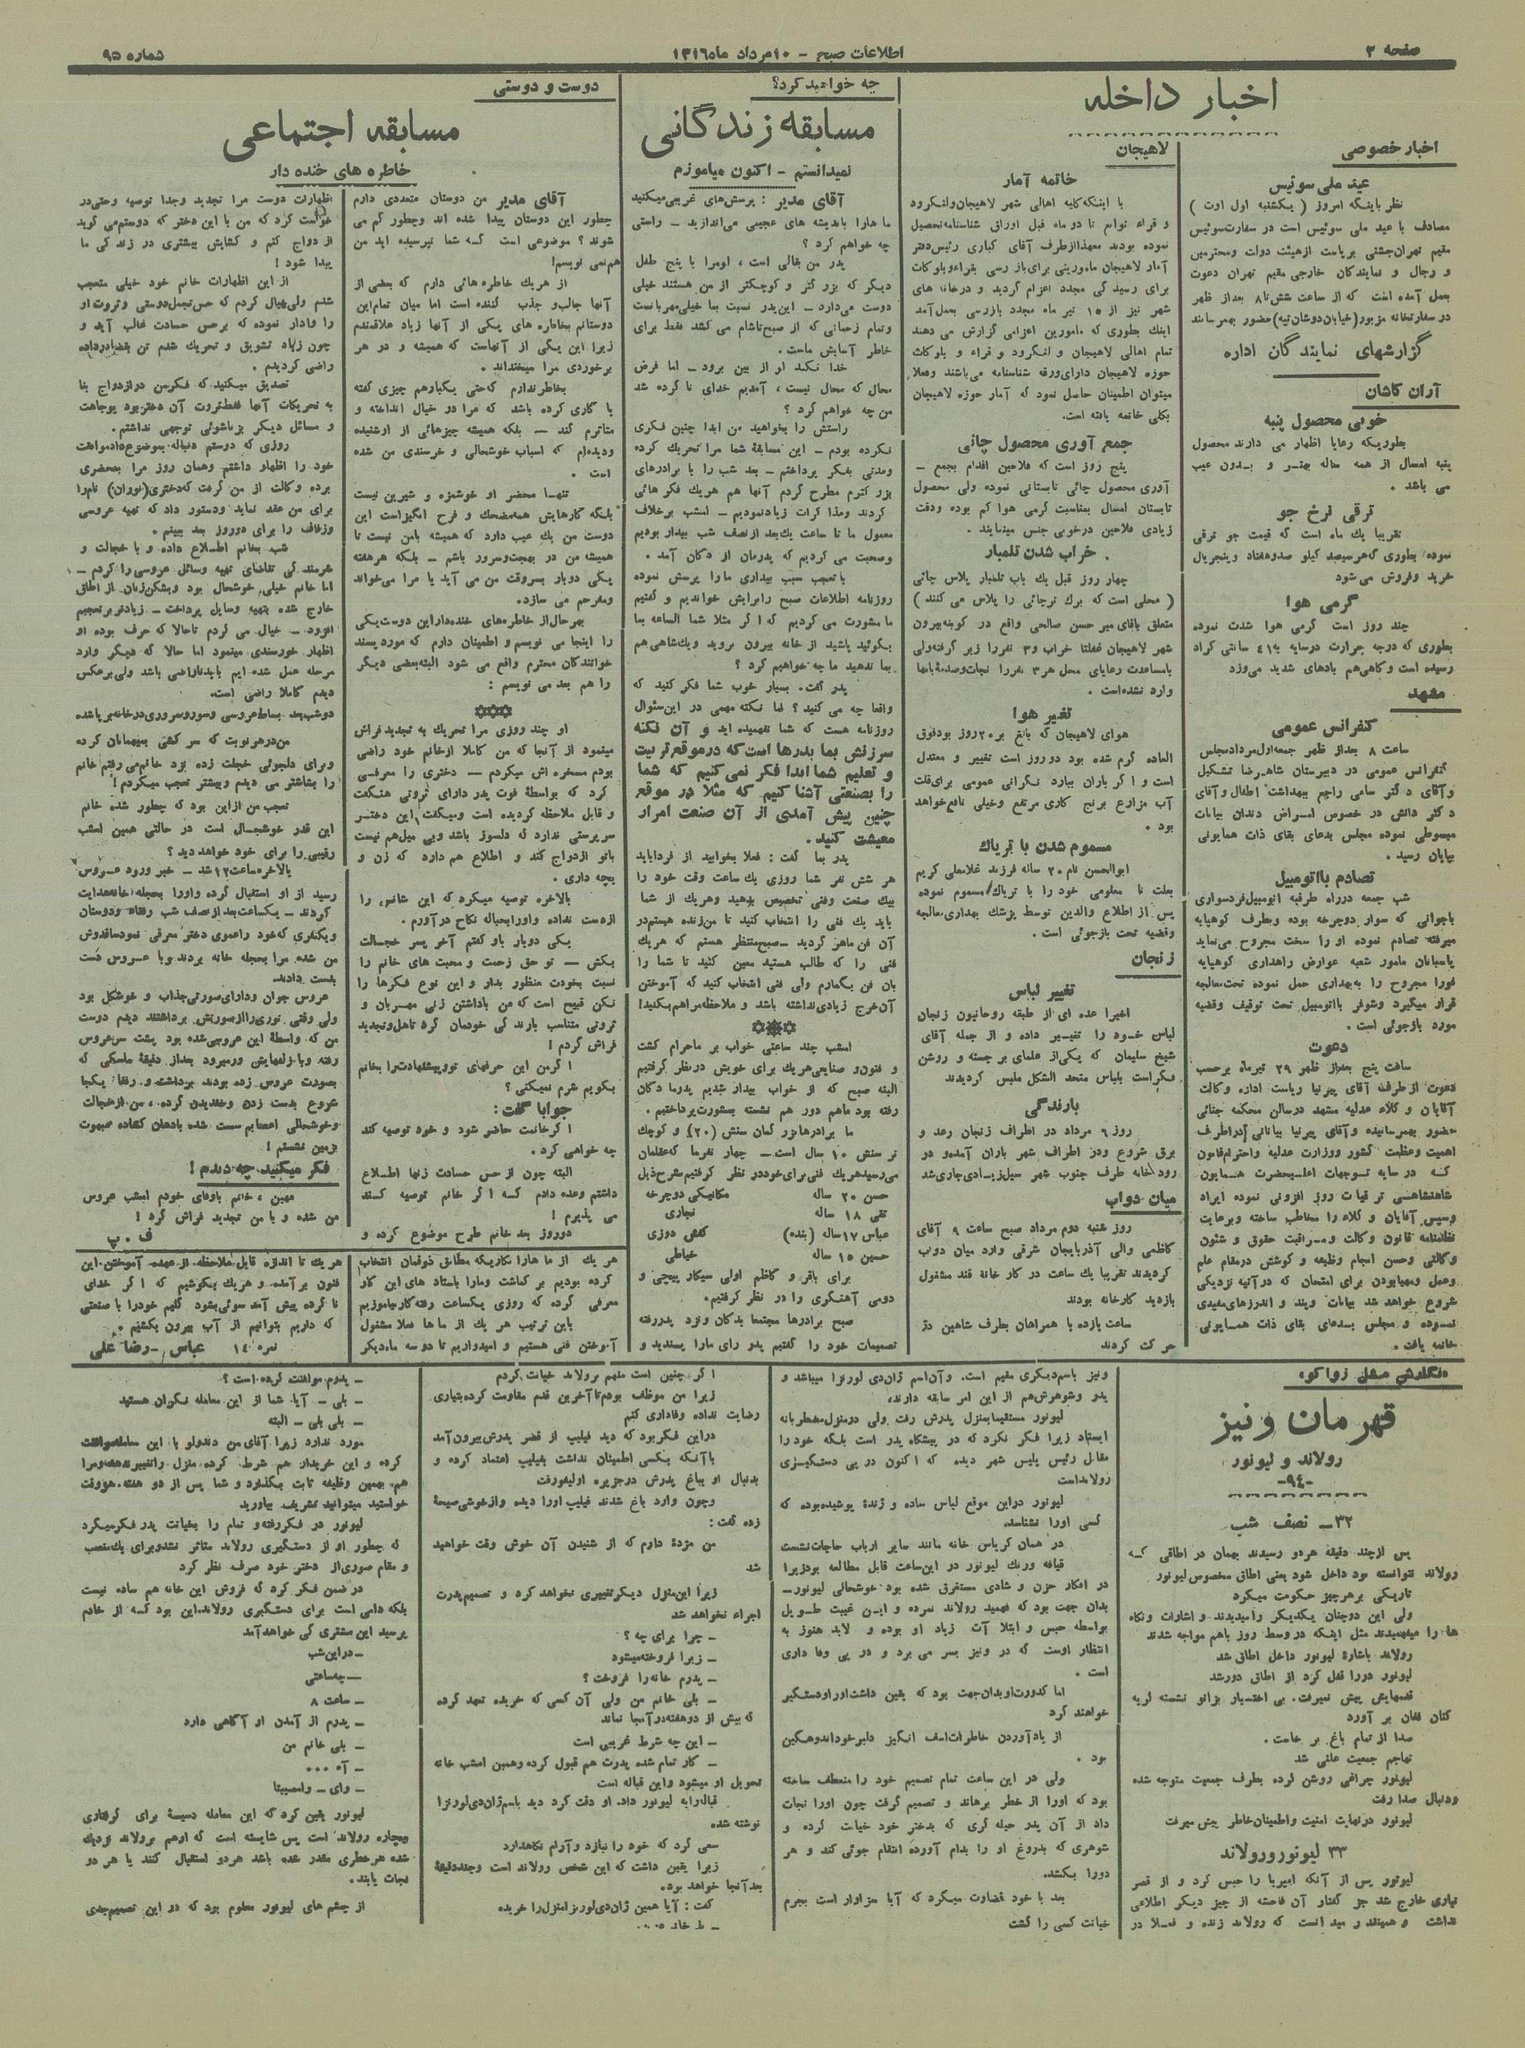 صفحه ۲
اطلاعات صبح - ۱۰ مرداد ماه ۱۳۱۶
شماره ۹۵
اخبار داخله
اخبار خصوصی
عید ملی سوئیس
نظر باینکه امروز ( یکشنبه اول اوت )
مصادف با عید ملی سوئیس است در سفارت سوئیس
مقیم تهران جشنی برپاست از هیئت دولت و محترمین
و رجال و نمایندگان خارجی مقیم تهران دعوت
بعمل آمده است که از ساعت شش تا ۸ بعد از ظهر
در سفارتخانه مزبور (خیابان دوشان تپه) حضور بهمرسانند
گزارشهای نمایندگان اداره
آران کاشان
خوبی محصول پنبه
بطوریکه رعایا اظهار می دارند محصول
پنبه امسال از همه ساله بهتر و بدون عیب
می باشد .
ترقی نرخ جو
تقریبا یک ماه است که قیمت جو ترقی
نموده بطوری که هر سیصد کیلو صد و هفتاد و پنج ریال
خرید و فروش می شود
گرمی هوا
چند روز است گرمی هوا شدت نموده
بطوری که درجه حرارت در سایه به ۴۱ سانتی گراد
رسیده است و گاهی هم بادهای شدید می وزد
مشهد
کنفرانس عمومی
ساعت ۸ بعد از ظهر جمعه اول مرداد مجلس
کنفرانس عمومی در دبیرستان شاهرضا تشکیل
و آقای دکتر سامی راجع ببهداشت اطفال و آقای
دکتر دانش در خصوص امراض دندان بیانات
مبسوطی نموده مجلس بدعای بقای ذات همایونی
بپایان رسید .
تصادم با اتومبیل
شب جمعه در راه طرقبه اتومبیل فرد سواری
با جوانی که سوار دوچرخه بوده و بطرف کوهپایه
میرفته تصادم نموده او را سخت مجروح می نماید
پاسبانان مامور شعبه عوارض راهداری کوهپایه
فورا مجروح را به بهداری حمل نموده تحت معالجه
قرار میگیرد و شوفر با اتومبیل تحت توقیف و قضیه
مورد بازجوئی است .
دعوت
ساعت پنج بعد از ظهر ۲۹ تیر ماه برحسب
دعوت از طرف آقای پیرنیا ریاست اداره وکالت
آقایان وکلاء عدلیه مشهد در سالن محکمه جنائی
حضور بهمرسانیده و آقای پیرنیا بیاناتی در اطراف
اهمیت و عظمت کشور و وزارت عدلیه و احترام قانون
که در سایه توجهات اعلیحضرت همایون
شاهنشاهی ترقیات روز افزونی نموده ایراد
و سپس آقایان وکلاء را مخاطب ساخته و برعایت
نظامنامه قانون وکالت و مراقبت حقوق و شئون
وکالتی و حسن انجام وظیفه و کوشش در مقام علم
و عمل و مهیا بودن برای امتحان که در آتیه نزدیکی
شروع خواهد شد بیانات و پند و اندرزهای مفیدی
نموده و مجلس بدعای بقای ذات همایونی
خاتمه یافت .
لاهیجان
خاتمه آمار
با اینکه کلیه اهالی شهر لاهیجان و لنگرود
و قراء توابع تا دو ماه قبل اوراق شناسنامه تحصیل
نموده بودند معهذا از طرف آقای کباری رئیس دفتر
آمار لاهیجان مامورینی برای بازرسی بقراء و بلوکات
برای رسیدگی مجدد اعزام گردید و در خانه های
شهر نیز از ۱۵ تیر ماه مجدد بازرسی بعمل آمد
اینک بطوری که مامورین اعزامی گزارش می دهند
تمام اهالی لاهیجان و لنگرود و قراء و بلوکات
حوزه لاهیجان دارای ورقه شناسنامه می باشند و فعلا
میتوان اطمینان حاصل نمود که آمار حوزه لاهیجان
بکلی خاتمه یافته است.
جمع آوری محصول چائی
پنج روز است که فلاحین اقدام بجمع -
آوری محصول چائی تابستانی نموده ولی محصول
تابستان امسال بمناسبت گرمی هوا کم بوده و دقت
زیادی فلاحین در خوبی جنس مینمایند .
خراب شدن تلمبار
چهار روز قبل یک باب تلمبار پلاس چائی
( محلی است که برگ تر چائی را پلاس می کنند )
متعلق بآقای میر حسن صالحی واقع در کوبنه بیرون
شهر لاهیجان غفلتا خراب و ۳ نفر را زیر گرفته ولی
با مساعدت رعایای محل هر ۳ نفر را نجات و صدمه بآنها
وارد نشده است .
تغییر هوا
هوای لاهیجان که بالغ بر ۲۰ روز بود فوق
العاده گرم شده بود دو روز است تغییر و معتدل
است و اگر باران ببارد نگرانی عمومی برای قلت
آب مزارع برنج کاری مرتفع و خیلی نافع خواهد
بود .
مسموم شدن با تریاک
ابوالحسن نام ۲۰ ساله فرزند غلامعلی کریم
بعلت نا معلومی خود را با تریاک مسموم نموده
پس از اطلاع والدین توسط پزشک بهداری معالجه
و قضیه تحت بازجوئی است .
زنجان
تغییر لباس
اخیرا عده ای از طبقه روحانیون زنجان
لباس خود را تغییر داده و از جمله آقای
شیخ سلیمان که یکی از علمای برجسته و روشن
فکر است بلباس متحد الشکل ملبس گردیدند
بارندگی
روز ۶ مرداد در اطراف زنجان رعد و
برق شروع و در اطراف شهر باران آمده و در
رودخانه طرف جنوب شهر سیل زیادی جاری شد
میان دواب
روز شنبه دوم مرداد صبح ساعت ۹ آقای
کاظمی والی آذربایجان شرقی وارد میان دوآب
گردیدند تقریبا یک ساعت در کارخانه قند مشغول
بازدید کارخانه بودند
ساعت یازده با همراهان بطرف شاهین دژ
حرکت کردند
چه خواهید کرد؟
مسابقه زندگانی
نمیدانستم - اکنون میاموزم
آقای مدیر : پرسش های غریبی میکنید
ما هارا باندیشه های عجیبی می اندازید - راستی
چه خواهم کرد ؟
پدر من بقالی است ، او مرا با پنج طفل
دیگر که بزرگتر و کوچکتر از من هستند خیلی
دوست می دارد - این پدر نسبت بما خیلی مهربانست
و تمام زحماتی که از صبح تا شام می کشد فقط برای
خاطر آسایش ماست .
خدا نکند او از بین برود - اما فرض
محال که محال نیست ، آمدیم خدای نا کرده شد
من چه خواهم کرد ؟
راستش را بخواهید من ابدا چنین فکری
نکرده بودم - این مسابقه شما مرا تحریک کرده
و مدتی بفکر پرداختم - بعد شب را با برادرهای
بزرگترم مطرح کردم آنها هم هر یک فکر هائی
کردند و مذاکرات زیاد نمودیم - امشب برخلاف
معمول ما تا ساعت یک بعد از نصف شب بیدار بودیم
و صحبت می کردیم که پدرمان از دکان آمد .
با تعجب سبب بیداری ما را پرسش نموده
روزنامه اطلاعات صبح را برایش خواندیم و گفتیم
ما مشورت می کردیم که اگر مثلا شما الساعه بما
بگوئید پاشید از خانه بیرون بروید و یک شاهی هم
بما ندهید ما چه خواهیم کرد ؟
پدر گفت. بسیار خوب شما فکر کنید که
واقعا چه می کنید ؟ اما نکته مهمی در این سئوال
روزنامه هست که شما نفهمیده اید و آن نکته
سرزنش بما پدرها است که در موقع تربیت
و تعلیم شما ابدا فکر نمی کنیم که شما
را بصنعتی آشنا کنیم که مثلا در موقع
چنین پیش آمدی از آن صنعت امرار
معیشت کنید .
پدر بما گفت : فعلا بخوابید از فردا باید
هر شش نفر شما روزی یک ساعت وقت خود را
بیک صنعت و فنی تخصیص بدهید و هر یک از شما
باید یک فنی را انتخاب کنید تا من زنده هستم در
آن فن ماهر گردید - صبح منتظر هستم که هر یک
فنی را که طالب هستید معین کنید تا شما را
بآن فن بگمارم ولی فنی انتخاب کنید که آموختن
آن خرج زیادی نداشته باشد و ملاحظه مرا هم بکنید!
امشب چند ساعتی خواب بر ما حرام گشت
و فنون و صنایعی هر یک برای خویش در نظر گرفتیم
البته صبح که از خواب بیدار شدیم پدر ما دکان
رفته بود ما هم دور هم نشسته بمشورت پرداختیم .
ما برادرها بزرگمان سنش (۲۰) و کوچک
تر سنش ۱۰ سال است - چهار نفر ما که عقلمان
می رسید هر یک فنی برای خود در نظر گرفتیم بشرح ذیل
حسن ۲۰ ساله مکانیکی دوچرخه
تقی ۱۸ ساله نجاری
عباس ۱۷ ساله (بنده) کفش دوزی
حسین ۱۵ ساله خیاطی
برای باقر و کاظم اولی سیگار پیچی و
دومی آهنگری را در نظر گرفتیم.
صبح برادرها مجتمعا بدکان و نزد پدر رفته
تصمیمات خود را گفتیم پدر رای ما را پسندید و
هر یک از ما هارا بکاریکه مطابق ذوقمان انتخاب
کرده بودیم بر گماشت و ما را باستاد های این کار
معرفی کرده که روزی یکساعت رفته کار بیاموزیم
باین ترتیب هر یک از ما ها فعلا مشغول
آموختن فنی هستیم و امیدواریم تا دو سه ماه دیگر
هر یک تا اندازه قابل ملاحظه از عهده آموختن این
فنون برآمده و هر یک بکوشیم که اگر خدای
نا کرده پیش آمد سوئی بشود گلیم خود را با صنعتی
که داریم بتوانیم از آب بیرون بکشیم .
نمره ۱۴ عباس - رضا علی
دوست و دوستی
مسابقه اجتماعی
خاطره های خنده دار
آقای مدیر من دوستان متعددی دارم
چطور این دوستان پیدا شده اند و چطور گم می
شوند ؟ موضوعی است که شما نپرسیده اید من
هم نمی نویسم!
از هر یک خاطره هائی دارم که بعضی از
آنها جالب و جذب کننده است اما میان تمام این
دوستانم بخاطره های یکی از آنها زیاد علاقمندم
زیرا این یکی از آنهاست که همیشه و در هر
برخوردی مرا میخنداند .
بخاطر ندارم که حتی یکبار هم چیزی گفته
یا کاری کرده باشد که مرا در خیال انداخته و
متاثرم کند - بلکه همیشه چیزهائی از او شنیده
و دیده ام که اسباب خوشحالی و خرسندی من شده
است .
تنها محضر او خوشمزه و شیرین نیست
بلکه کارهایش همه مضحک و فرح انگیز است این
دوست من یک عیب دارد که همیشه با من نیست تا
همیشه من در بهجت و سرور باشم - بلکه هر هفته
یکی دوبار بسر وقت من می آید یا مرا می خواند
و مفرحم می سازد.
بهر حال از خاطره های خنده دار این دوست یکی
را اینجا می نویسم و اطمینان دارم که مورد پسند
خوانندگان محترم واقع می شود البته بعضی دیگر
را هم بعد می نویسم :
او چند روزی مرا تحریک به تجدید فراش
مینمود از آنجا که من کاملا از خانم خود راضی
بودم مسخره اش میکردم - دختری را معرفی
کرد که بواسطه فوت پدر دارای ثروتی هنگفت
و قابل ملاحظه گردیده است و میگفت این دختر
سرپرستی ندارد که دلسوز باشد و بی میل هم نیست
باتو ازدواج کند و اطلاع هم دارد که زن و
بچه داری .
بالاخره توصیه میکرد که این شانس را
از دست نداده و او را بحباله نکاح درآورم .
یکی دوبار باو گفتم آخر پسر خجالت
بکش - تو حق زحمت و محبت های خانم را
نسبت بخودت منظور بدار و این نوع فکرها را
نکن قبیح است که من با داشتن زنی مهربان و
ثروتی متناسب بارندگی خودمان گرد تاهل و تجدید
فراش گردم !
اگر من این حرفهای تو و پیشنهادت را بخانم
بگویم شرم نمیکنی ؟
جوابا گفت :
اگر خانمت حاضر شود و خود توصیه کند
چه خواهی کرد .
البته چون از حس حسادت زنها اطلاع
داشتم وعده دادم که اگر خانم توصیه کند
می پذیرم !
دو روز بعد خانم طرح موضوع کرده و
اظهارات دوست مرا تجدید و جدا توصیه و حتی در
خواست کرد که من با این دختر که دوستم می گوید
ازدواج کنم و گشایش بیشتری در زندگی ما
پیدا شود !
از این اظهارات خانم خود خیلی متعجب
شدم ولی خیال کردم که حس تجمل دوستی و ثروت او
را وادار نموده که برحس حسادت غالب آید و
چون زیاد تشویق و تحریک شدم تن بقضا در داده
راضی گردیدم .
تصدیق میکنید که فکر من در ازدواج بنا
به تحریکات آنها فقط ثروت آن دختر بود بوجاهت
و مسائل دیگر زناشوئی توجهی نداشتم .
روزی که دوستم دنباله موضوع داد موافقت
خود را اظهار داشتم و همان روز مرا بمحضری
برده وکالت از من گرفت که دختری (توران) نام را
برای من عقد نماید و دستور داد که تهیه عروسی
و زفاف را برای دو روز بعد ببینم .
شب بخانم اطلاع داده و با خجالت و
شرمندگی تقاضای تهیه وسائل عروسی را کردم -
اما خانم خیلی خوشحال بود و بشکن زنان از اطاق
خارج شده بتهیه وسایل پرداخت - زیادتر بر تعجبم
افزود - خیال می کردم تا حالا که حرف بوده او
اظهار خورسندی مینمود اما حالا که دیگر وارد
مرحله عمل شده ایم باید ناراضی باشد ولی برعکس
دیدم کاملا راضی است.
دو شب بعد بساط عروسی و سور و سروری در خانه برپا شده
من در هر نوبت که سرکشی بمیهمانان کرده
و برای دلجوئی خجلت زده نزد خانم می رفتم خانم
را بشاش تر می دیدم و بیشتر تعجب میکردم !
تعجب من از این بود که چطور شده خانم
این قدر خوشحال است در حالتی همین امشب
رقیبی را برای خود خواهد دید ؟
بالاخره ساعت ۱۲ شد - خبر ورود عروس
رسید از او استقبال کرده و او را بحجله خانه هدایت
کردند - یکساعت بعد از نصف شب رفقاء و دوستان
و یکنفری که خود را عموی دختر معرفی نمود ساقدوش
من شده مرا بحجله خانه بردند و با عروس دست
بدست دادند.
عروس جوان و دارای صورتی جذاب و خوشگل بود
ولی وقتی توری را از صورتش برداشتند دیدم دوست
من که واسطه این عروسی شده بود پشت سر عروس
رفته و با زلفهایش ور میرود بعد از دقیقه ماسکی که
بصورت عروس زده بودند برداشته و رفقا یکجا
شروع بدست زدن و خندیدن کرده ، من از خجالت
و خوشحالی اعصابم سست شده با دهان گشاده مبهوت
بزمین نشستم !
فکر میکنید چه دیدم !
مهین ، خانم باوفای خودم امشب عروس
من شده و با من تجدید فراش کرد !
ف . پ
«نگارش میشل زواکو»
قهرمان ونیز
رولاند و لیونور
-۹۴-
۳۲- نصف شب
پس از چند دقیقه هر دو رسیدند بهمان در اطاقی که
رولاند نتوانسته بود داخل شود یعنی اطاق مخصوص لیونور
تاریکی بر هر چیز حکومت میکرد
ولی این دو چنان یکدیگر را میدیدند و اشارات و نگاه
ها را میفهمیدند مثل اینکه در وسط روز باهم مواجه شدند
رولاند باشاره لیونور داخل اطاق شد
لیونور در را قفل کرد از اطاق دور شد
قدمهایش پیش نمیرفت. بی اختیار بزانو نشسته گریه
کنان فغان بر آورد
صدا از تمام باغ برخاست .
تهاجم جمعیت علنی شد
لیونور چراغی روشن کرده بطرف جمعیت متوجه شده
و دنبال صدا رفت
لیونور در نهایت امنیت و اطمینان خاطر پیش میرفت
۳۳ لیونور و رولاند
لیونور پس از آنکه امپریا را حبس کرد و از قصر
نیاری خارج شد جز گفتار آن فاحشه از چیز دیگر اطلاعی
نداشت و همینقدر میدانست که رولاند زنده و فعلا در
ونیز باسم دیگری مقیم است. و آن اسم ژان دی لورنزا میباشد و
پدر و شوهرش هم از این امر سابقه دارند،
لیونور مستقیما بمنزل پدرش رفت ولی در منزل مضطربانه
ایستاد زیرا فکر نکرد که در پیشگاه پدر است بلکه خود را
مقابل رئیس پلیس شهر دیده که اکنون در پی دستگیری
رولاند است
لیونور در این موقع لباس ساده و ژنده پوشیده بود که
کسی او را نشناسد.
در همان کریاس خانه مانند سایر ارباب حاجات نشست
قیافه و رنگ لیونور در این ساعت قابل مطالعه بود زیرا
در افکار حزن و شادی مستغرق شده بود خوشحالی لیونور -
بدان جهت بود که فهمید رولاند نمرده و این غیبت طویل
بواسطه حبس و ابتلاآت زیاد او بوده و لابد هنوز به
انتظار اوست که در ونیز بسر می برد و در پی وفاداری
است .
اما کدورت او بدان جهت بود که یقین داشت او را دستگیر
خواهند کرد
از یاد آوردن خاطرات اسف انگیز دلبر خود اندوهگین
بود .
ولی در این ساعت تمام تصمیم خود را منعطف ساخته
بود که او را از خطر برهاند و تصمیم گرفت چون او را نجات
داد از آن پدر حیله گری که بدختر خود خیانت کرده و
شوهری که بدروغ او را بدام آورده انتقام جوئی کند و هر
دو را بکشد.
بعد با خود قضاوت میکرد که آیا سزاوار است بجرم
خیانت کسی را کشت
اگر چنین است منهم برولاند خیانت کردم
زیرا من موظف بودم تا آخرین قدم مقاومت کرده بتباری
رضایت نداده وفاداری کنم
در این فکر بود که دید فیلیپ از قصر پدرش بیرون آمد
با آنکه بکسی اطمینان نداشت بفیلیپ اعتماد کرده و
بدنبال او بباغ پدرش در جزیره اولیفورفت
و چون وارد باغ شدند فیلیپ او را دیده و از خوشی صیحه
زده گفت :
من مژده دارم که از شنیدن آن خوش وقت خواهید
شد
زیرا این منزل دیگر تغییری نخواهد کرد و تصمیم پدرت
اجراء نخواهد شد
- چرا برای چه ؟
- زیرا فروخته میشود
- پدرم خانه را فروخت ؟
- بلی خانم من ولی آن کسی که خریده تعهد کرده
که بیش از دو هفته در آنجا نماند
- این چه شرط غریبی است
- کار تمام شده پدرت هم قبول کرده و همین امشب خانه
تحویل او میشود و این قباله است
قباله را به لیونور داد. او دقت کرد دید باسم ژان دی لورنزا
نوشته شده
سعی کرد که خود را نبازد و آرام نگاهدارد
زیرا یقین داشت که این شخص رولاند است و چند دقیقه
بعد آنجا خواهد بود.
گفت : آیا همین ژان دی لورنزا منزل را خریده
- پدرم موافقت کرده است ؟
- بلی - آیا شما از این معامله نگران هستید
- بلی بلی - البته
مورد ندارد زیرا آقای من دندولو با این معامله موافقت
کرده و این خریدار هم شرط کرده منزل را تغییر ندهد و مرا
هم، بهمین وظیفه ثابت بگذارد و شما پس از دو هفته، هر وقت
خواستید میتوانید تشریف بیاورید
لیونور در فکر رفته و تمام را بخیانت پدر فکر میکرد
که چطور او از دستگیری رولاند متاثر نشده و برای یک منصب
و مقام صوری از دختر خود صرف نظر کرد
در ضمن فکر کرد که فروش این خانه هم ساده نیست
بلکه دامی است برای دستگیری رولاند. این بود که از خادم
پرسید این مشتری کی خواهد آمد
- در این شب
- چه ساعتی
- ساعت ۸
- پدرم از آمدن او آگاهی دارد
- بلی خانم من
- آه ....
- وای - وامصیبتا
لیونور یقین کرد که این معامله دسیسه برای گرفتاری
بیچاره رولاند است پس شایسته است که او هم برولاند نزدیک
شده هر خطری مقدر شده باشد هر دو استقبال کنند یا هر دو
نجات یابند.
از چشم های لیونور معلوم بود که در این تصمیم جدی